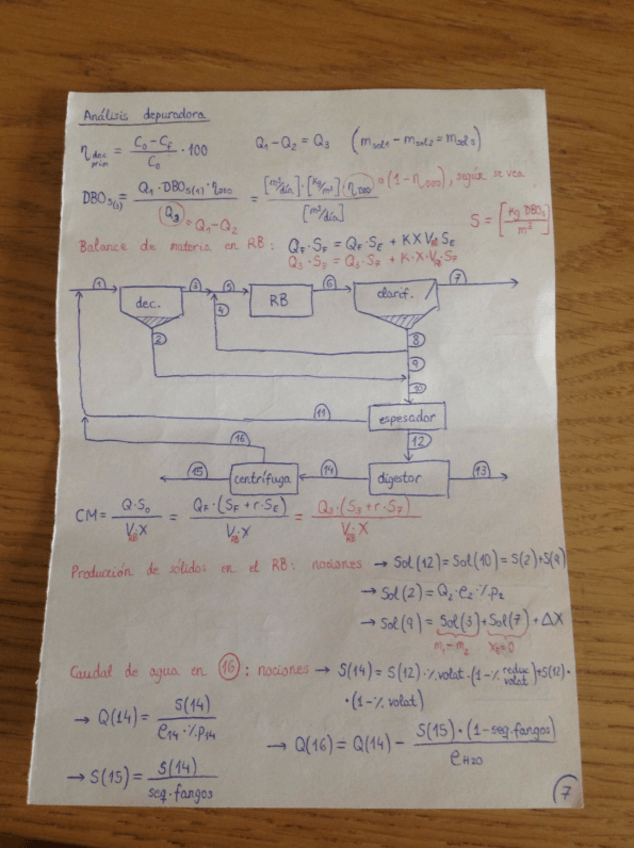 Análisis depuradora
η dec prim = (C₀ - C_F / C₀) · 100   Q₁ - Q₂ = Q₃   (m sol 1 - m sol 2 = m sol 3)
DBO₅₍₃₎ = Q₁ · DBO₅₍₁₎ · η DBO / Q₃ = [m³/día] · [kg/m³] · η DBO / [m³/día]   o (1 - η DBO), según se vea
= Q₁ - Q₂
S = [kg DBO₅ / m³]
Balance de materia en RB: Q_F · S_F = Q_F · S_E + K X V_RB S_E
Q₃ · S₃ = Q₃ · S₇ + K · X · V_RB · S₇
1 dec. 3 5 RB 6 clarif. 7
4
2 8
9
10
11 espesador
16 12
15 centrífuga 14 digestor 13
CM = Q · S₀ / V_RB · X = Q_F · (S_F + r · S_E) / V_RB · X = Q₃ · (S₃ + r · S₇) / V_RB · X
Producción de sólidos en el RB: nociones → Sol(12) = Sol(10) = S(2) + S(9)
→ Sol(2) = Q₂ · ρ₂ · % p₂
→ Sol(9) = Sol(3) + Sol(7) + ΔX
m₁ - m₂   X_E = 0
Caudal de agua en 16: nociones → S(14) = S(12) · % volat · (1 - % reduc volat) + S(12) ·
· (1 - % volat)
→ Q(14) = S(14) / ρ₁₄ · % p₁₄
→ Q(16) = Q(14) - S(15) · (1 - seq. fangos) / ρ H2O
→ S(15) = S(14) / seq. fangos
7